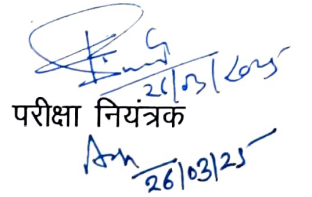 26/03/2025
परीक्षा नियंत्रक
26/03/25